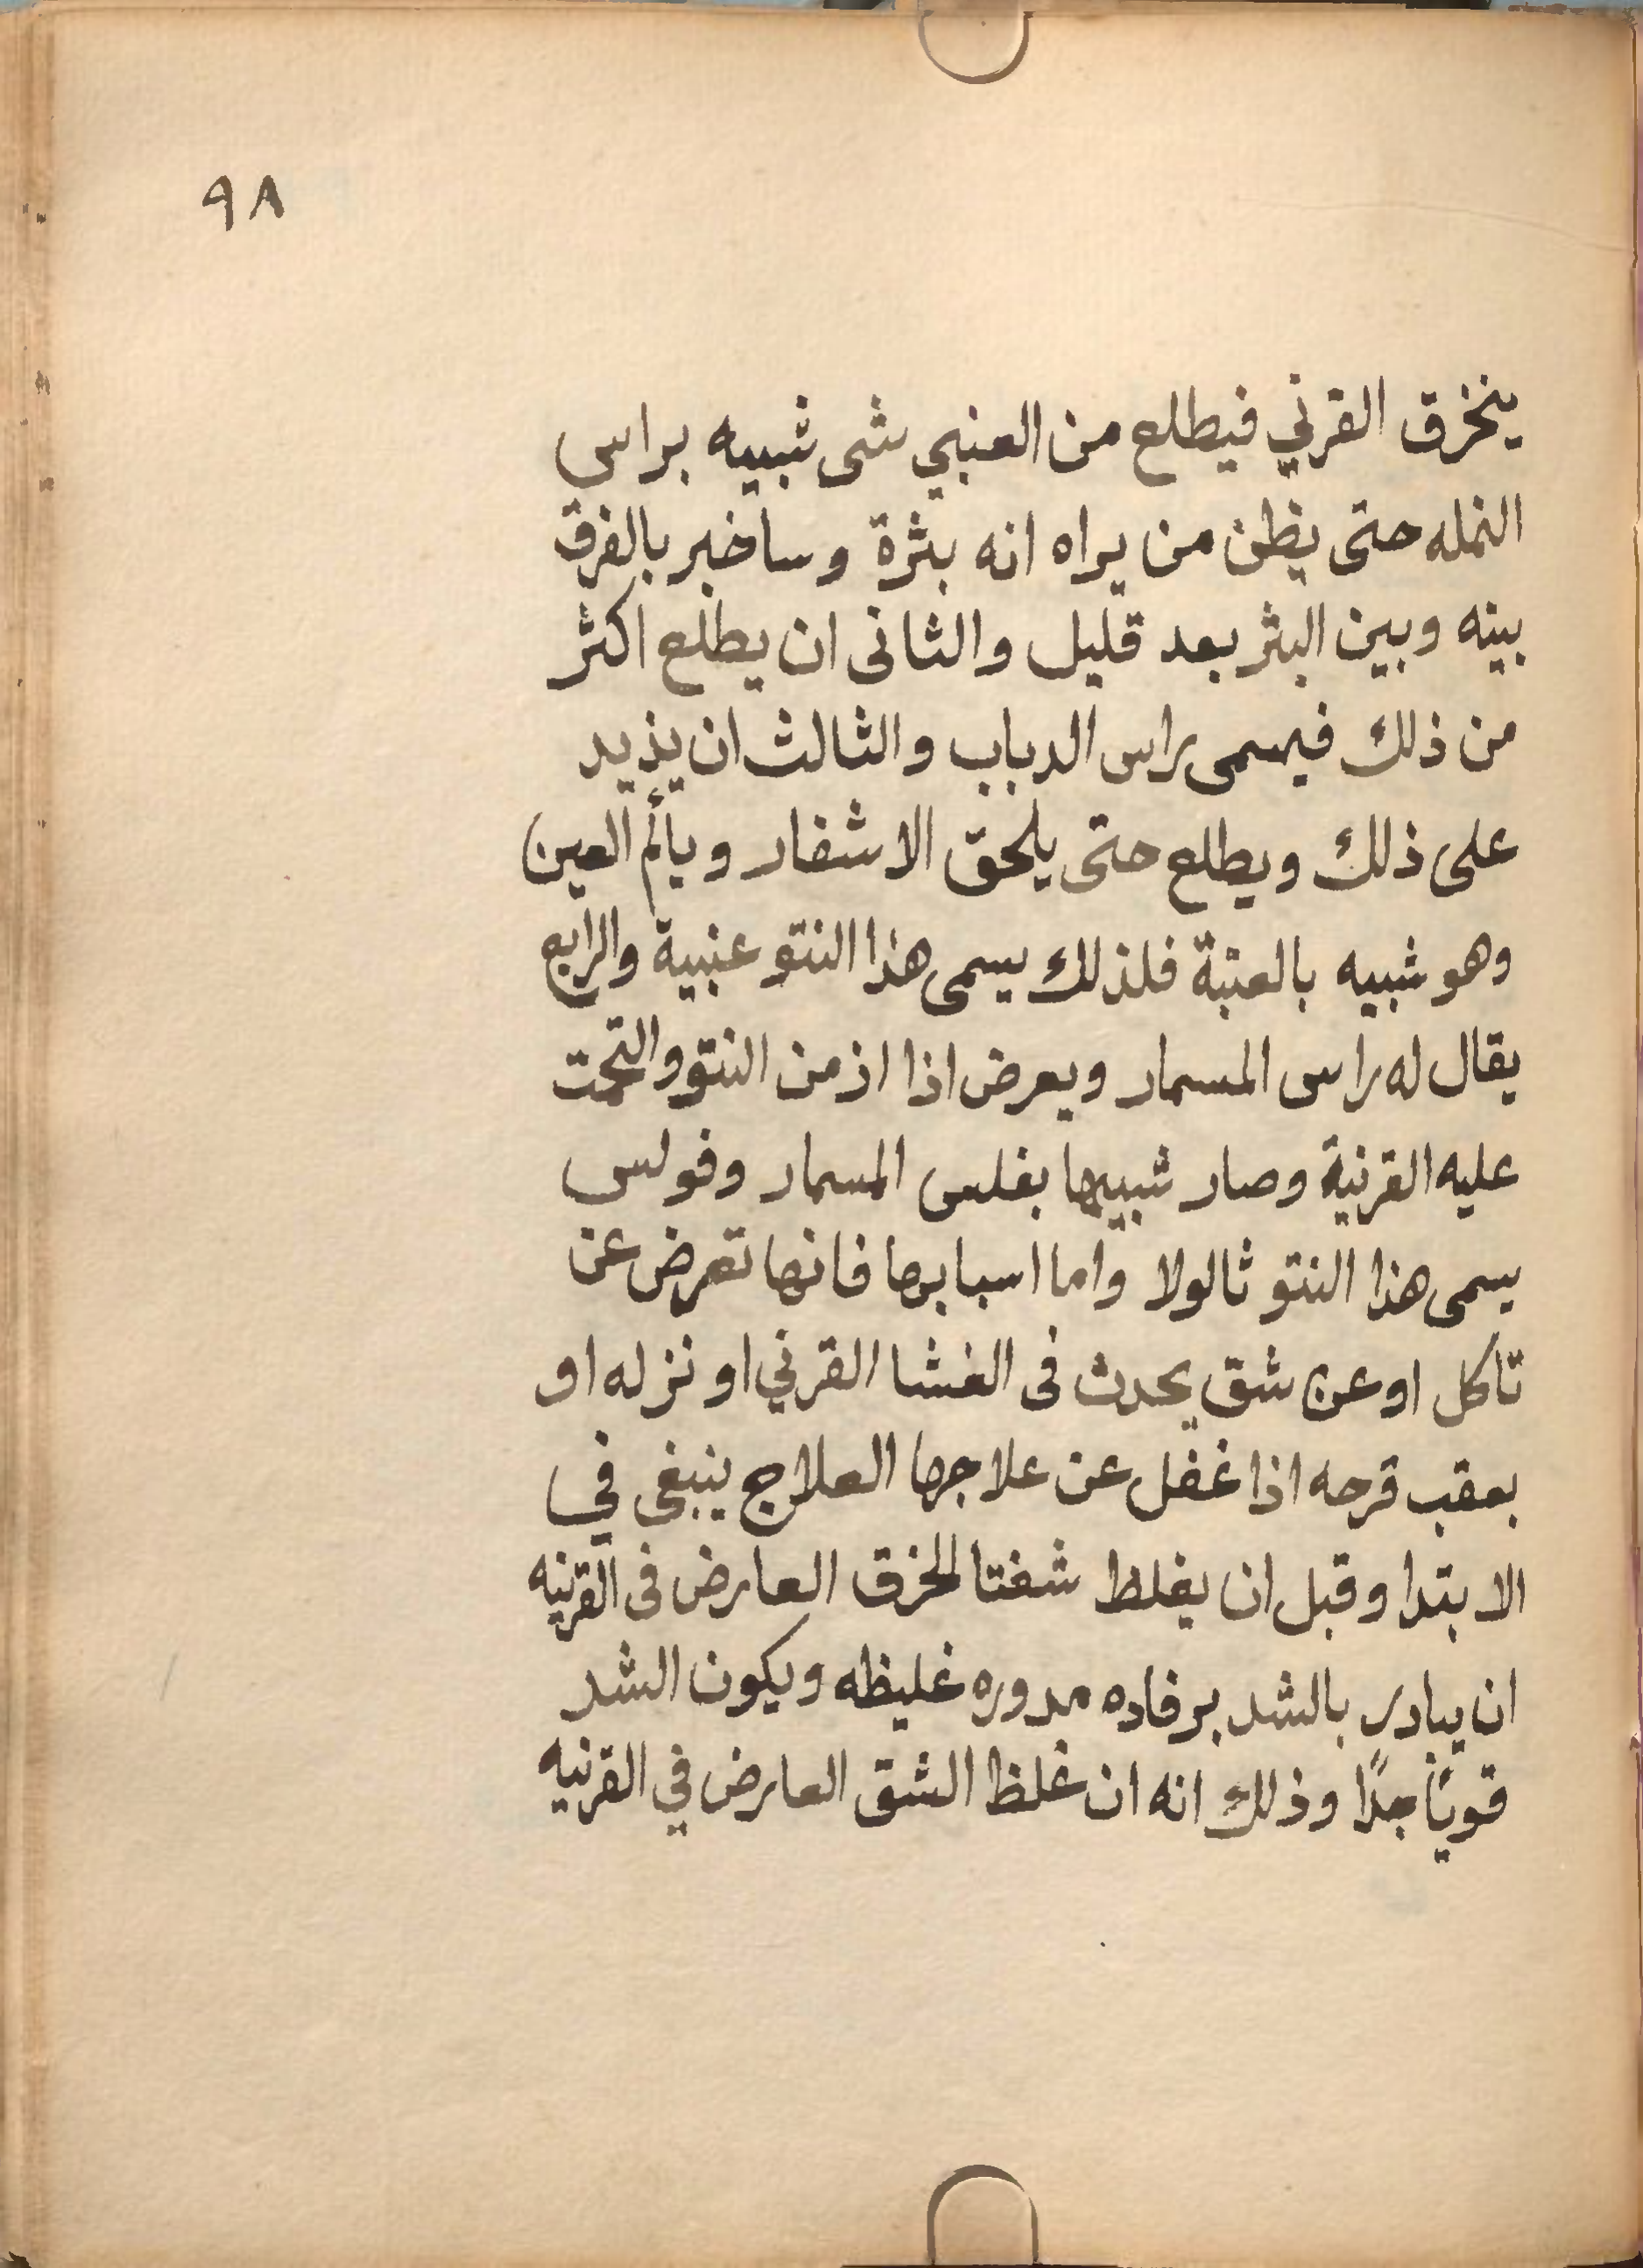 ٩٨
ينخرق القرني فيطلع من العنبي شى شبيه براس
النمله حتى يظن من يراه انه بثرة وساخبر بالفرق
بينه وبين البثر بعد قليل والثانى ان يطلع اكثر
من ذلك فيسمى راس الدباب والثالث ان يذيد
على ذلك ويطلع حتى يلحق الاشفار ويألم العين
وهو شبيه بالعنبة فلذلك يسمى هذا النتو عنبية والرابع
يقال له راس المسمار ويعرض اذا ازمن النتو والتحمت
عليه القرنية وصار شبيها بفلس المسمار وفولس
يسمى هذا النتو ثالولا واما اسبابها فانها تعرض عن
تاكل او عن شق يحدث فى الغشا القرني او نزله او
بعقب قرحه اذا غفل عن علاجها العلاج ينبغى في
الابتدا وقبل ان يغلط شفتا الخرق العارض فى القرنيه
ان يبادر بالشد برفاده مدوره غليظه ويكون الشد
قويًا جدًا وذلك انه ان غلظ الشق العارض في القرنيه